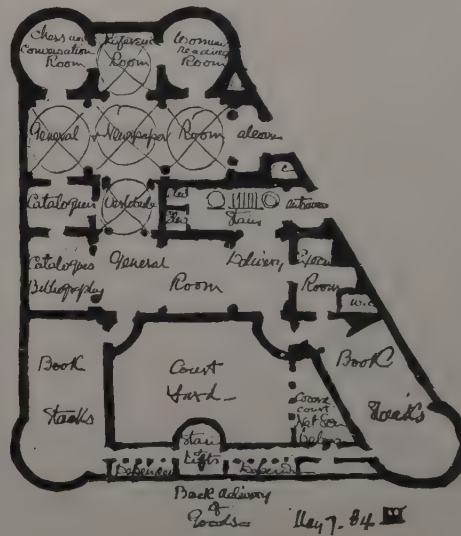 Chess and
Conversation
Room
Reference
Room
Womens
reading
Room
General
Newspaper
Room
alcove
Catalogues
Vestibule
Stairs
entrance
Catalogues
Bibliography
General
Room
Delivery
Room
W.C.
Book
Stacks
Court
Yard
Book
Stacks
court
Stair
Lifts
Back delivery
of
Goods
May 7. 84